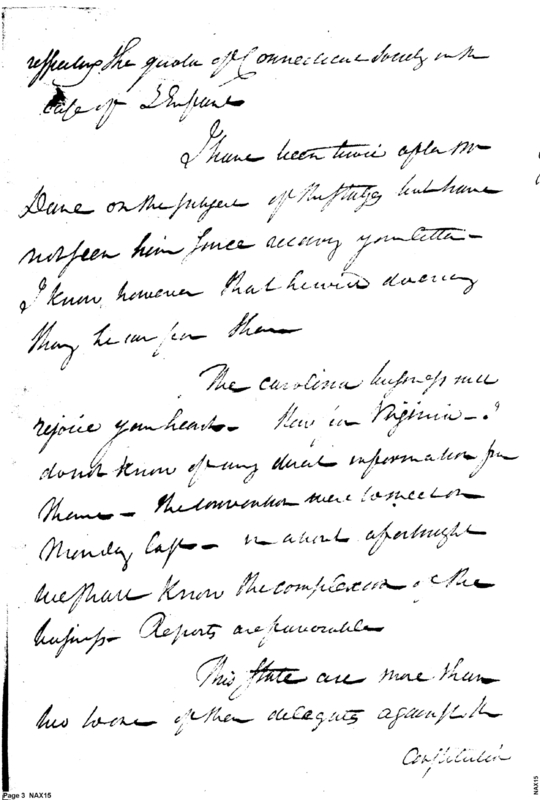 respecting the quota of Connecticut Society in the
case of L'Enfant
I have been twice after Mr
Dane on the subject of the but have
not seen him since receiving your letter—
I know however that he will do every
thing he can for them
The Carolina business will
rejoice your heart— Now in Virginia—
do not know of any direct information from
thence— The convention were to meet on
Monday last— in about a fortnight
we shall know the complexion of the
business— Reports are favorable
This State are more than
two to one of their delegates against the
Constitution
Page 3 NAX15
NAX15